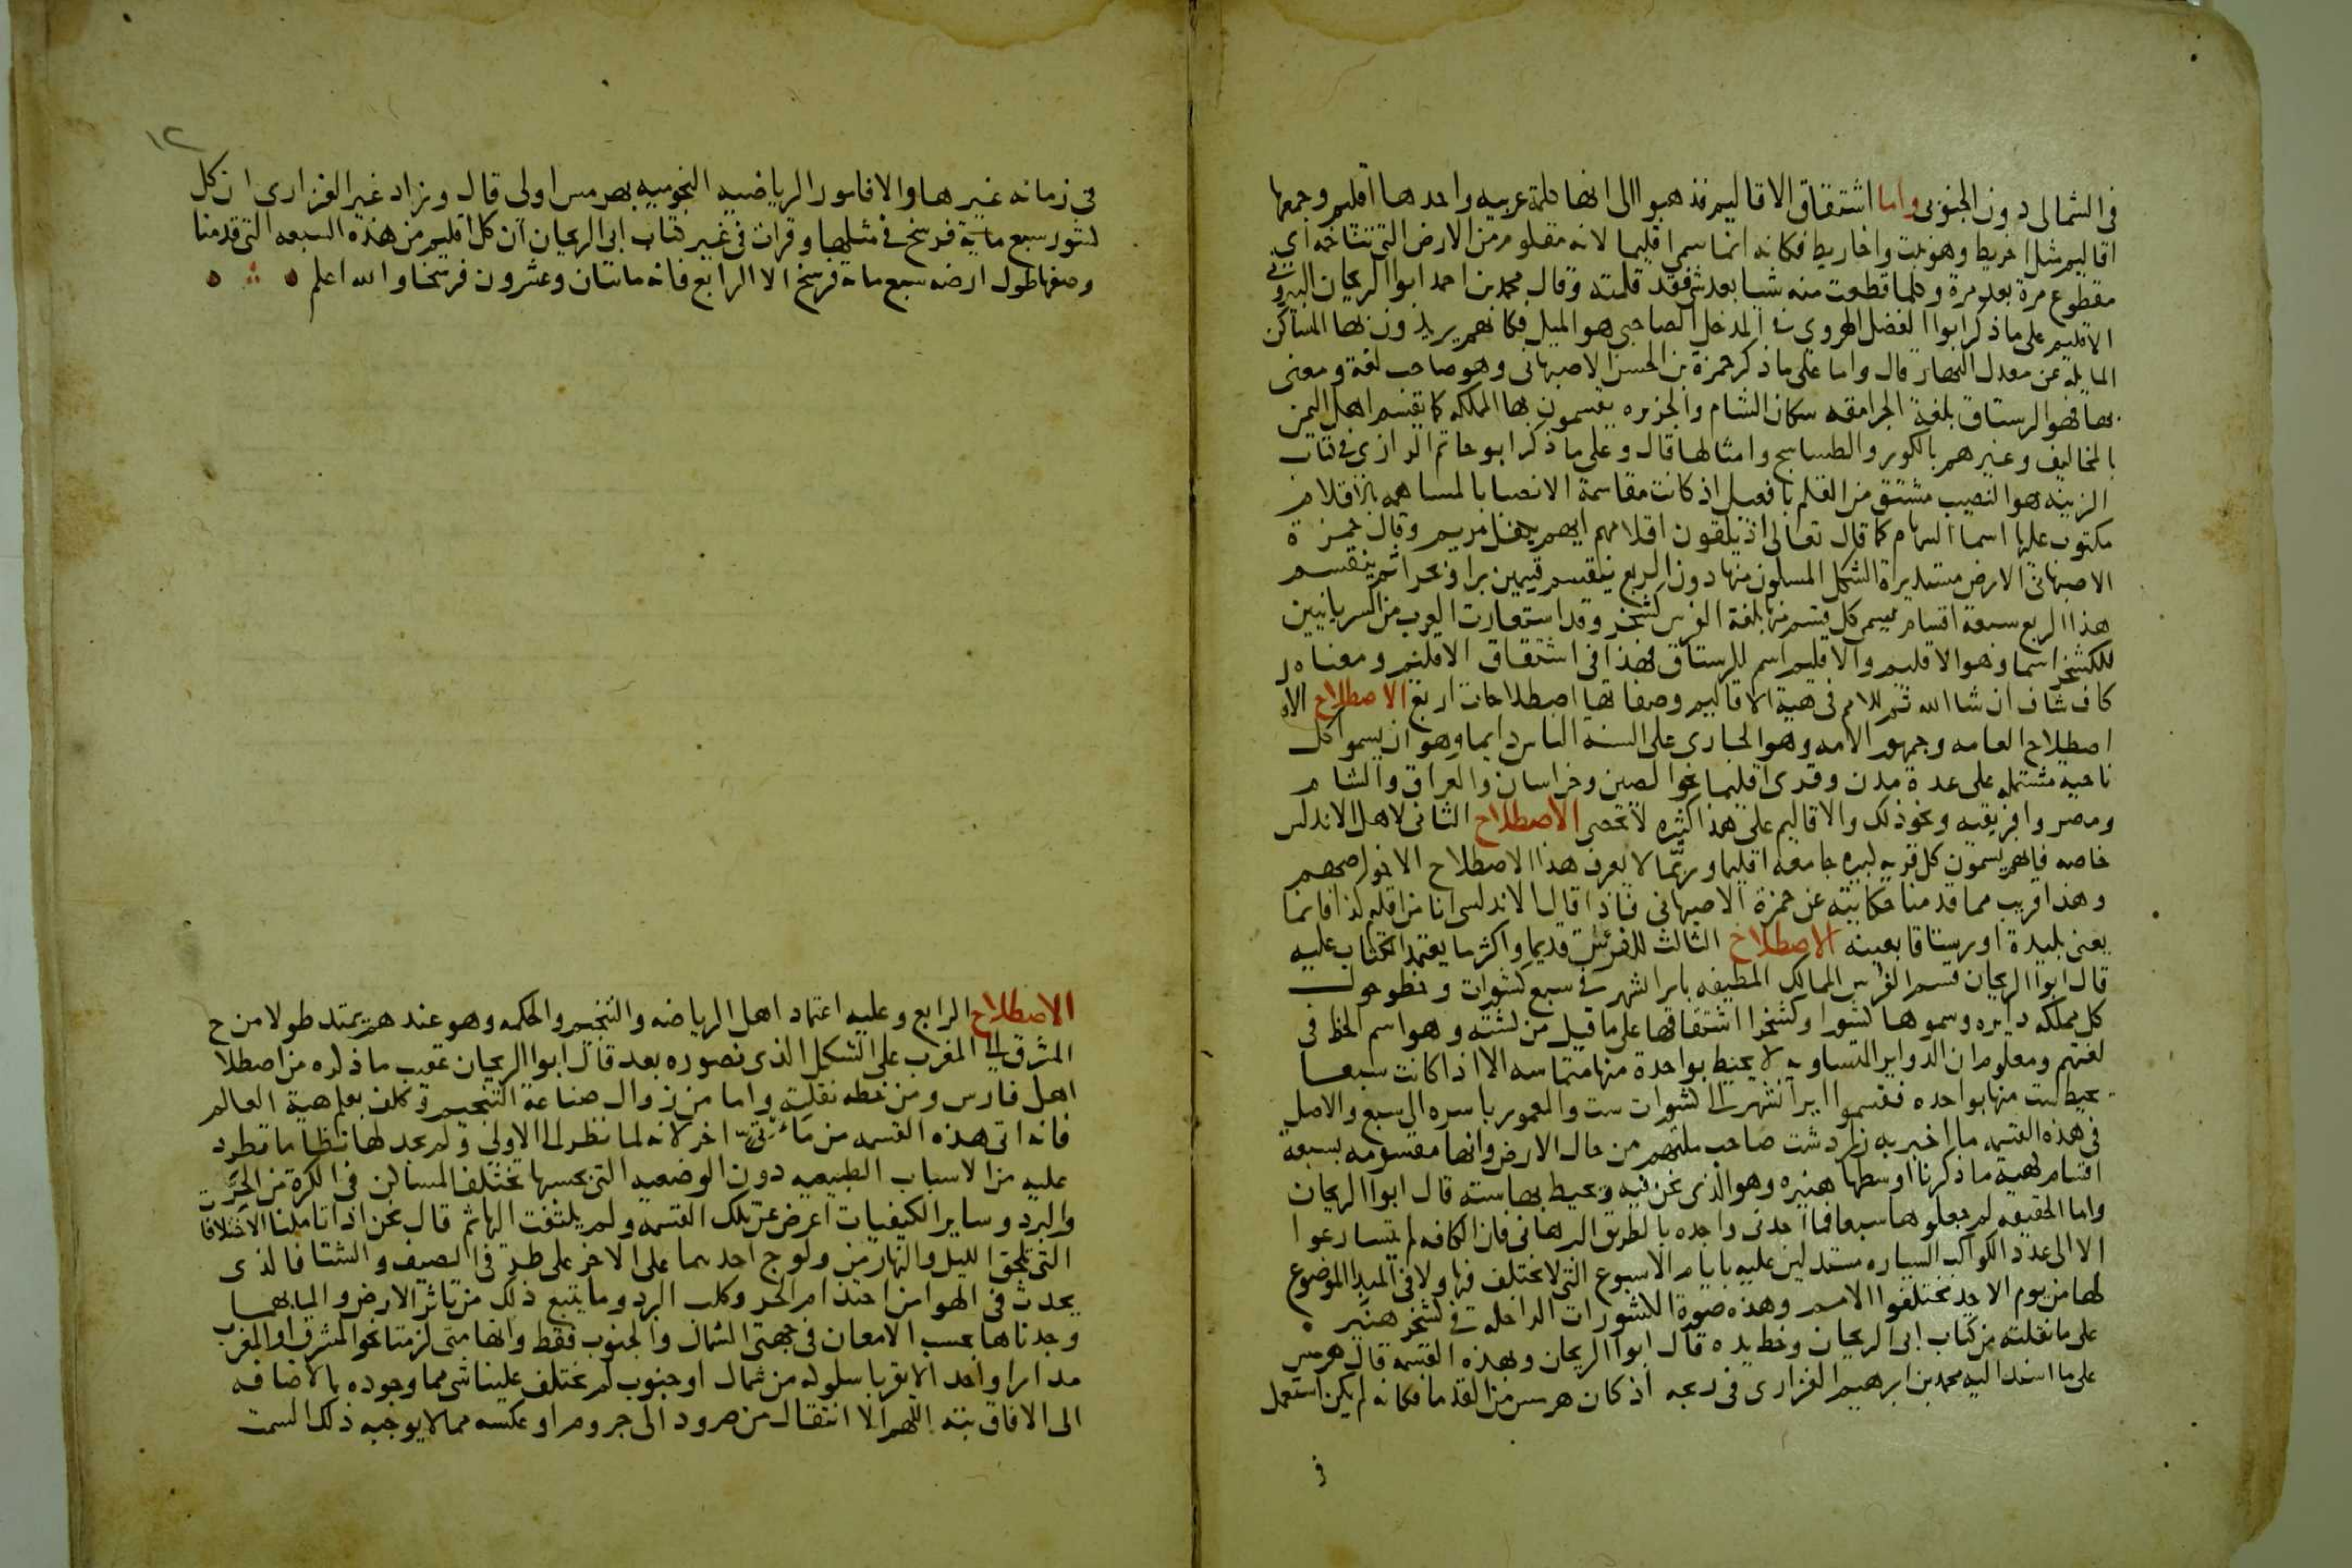 في الشمالي دون الجنوبي واما اشتقاق الاقاليم فذهبوا الى انها كلمة عربيه واحدها اقليم وجمعها
اقاليم مثل اخريط وهو نبت واخاريط فكانه انما سمي اقليما لانه مقلوم من الارض التي تتاخمه اي
مقطوع مرة بعد مرة وكلما قطعت منه شيا بعد شي فقد قلمته وقال محمد بن احمد ابوا الريحان البيروني
الاقليم على ما ذكر ابوا الفضل الهروي في المدخل الصاحبي هو الميل فكانهم يريدون بها المساكن
المايلة عن معدل النهار قال واما على ما ذكر حمزة بن الحسن الاصبهاني وهو صاحب لغة ومعنى
بها فهو الرستاق بلغة الجرامقه سكان الشام والجزيره يقسمون بها المملكه كما يقسم اهل اليمن
بالمخاليف وغيرهم بالكور والطساسيج وامثالها قال وعلى ما ذكر ابو حاتم الرازي في كتاب
الزينه هو النصيب مشتق من القلم بافعيل اذ كانت مقاسمة الانصبا بالمساهمه بالاقلام
مكتوب عليها اسما السهام كما قال تعالى اذ يلقون اقلامهم ايهم يكفل مريم وقال حمزة
الاصبهاني الارض مستديرة الشكل المسكون منها دون الربع ينقسم قسمين برا وبحرا ثم ينقسم
هذا الربع سبعة اقسام يسمى كل قسم منها بلغة الفرس كشخر وقد استعارت العرب من السريانيين
للكشخر اسما وهو الاقليم والاقليم اسم للرستاق فهذا في اشتقاق الاقليم ومعناه
كاف شاف ان شا الله ثم للام في هية الاقاليم وصفاتها اصطلاحات اربع الاصطلاح الاو
اصطلاح العامه وجمهور الامه وهو الجاري على السنه الناس دايما وهو ان يسموا كل
ناحيه مشتمله على عدة مدن وقرى اقليما نحو الصين وخراسان والعراق والشام
ومصر وافريقيه ونحو ذلك والاقاليم على هذا كثيره لا تحصى الاصطلاح الثاني لاهل الاندلس
خاصه فانهم يسمون كل قريه كبيره جامعه اقليما وربما لا يعرف هذا الاصطلاح الا خواصهم
وهذا قريب مما قدمنا حكايته عن حمزة الاصبهاني فاذا قال الاندلسي انا من اقليم كذا فانما
يعني بليدة او رستاقا بعينه الاصطلاح الثالث للفرس قديما واكثر ما يعتمد الكتاب عليه
قال ابوا الريحان قسم الفرس الممالك المطيفه بايرانشهر في سبع كشورات وخطوا حول
كل مملكه دايره وسموها كشورا وكشخرا اشتقاقها على ما قيل من كشته وهو اسم الخط في
لغتهم ومعلوم ان الدواير المتساويه لا يحيط بواحدة منها متماسه الا اذا كانت سبعا
يحيط ست منها بواحده فقسموا ايرانشهر الى كشورات ست والمعمور باسره الى سبع والاصل
في هذه القسمه ما اخبر به زرادشت صاحب ملتهم من حال الارض وانها مقسومه بسبعة
اقسام كهية ما ذكرنا اوسطها هنيره وهو الذي نحن فيه ويحيط بها سته قال ابوا الريحان
واما الحقيقه لم جعلوها سبعا فما احدني واجده بالطريق البرهاني فان الكافه لم يتسارعوا
الا الى عدد الكواكب السياره مستدلين عليه بايام الاسبوع التي لا يختلف فيها ولا في المبدا الموضوع
لها من يوم الاحد مختلفوا الامم وهذه صورة الكشورات الداخله في كشخر هنير
على ما نقلته من كتاب ابي الريحان وخط يده قال ابوا الريحان وبهذه القسمه قال هرمس
على ما اسند اليه محمد بن ابرهيم الفزاري في زيجه اذ كان هرمس من القدما فكانه لم يكن استعمل
في
١٢
في زمانه غيرها والا فالامور الرياضيه النجوميه بهرمس اولى قال وزاد غير الفزاري ان كل
كشور سبع ماية فرسخ في مثلها وقرات في غير كتاب ابي الريحان ان كل اقليم من هذه السبعه التي قدمنا
وصفها طول ارضه سبع مائة فرسخ الا الرابع فانه مائتان وعشرون فرسخا والله اعلم
الاصطلاح الرابع وعليه اعتماد اهل الرياضه والتنجيم والحكمه وهو عندهم يمتد طولا من ح
المشرق الى المغرب على الشكل الذي نصوره بعد قال ابوا الريحان عقيب ما ذكره من اصطلا
اهل فارس ومن خطه نقلته واما من زوال صناعة التنجيم وكلف بعلم هية العالم
فانه اتى هذه القسمه من ماتى اخر لانه لما نظر الى الاولى ولم يجد لها نظاما تطرد
عليه من الاسباب الطبيعيه دون الوضعيه التي بحسبها تختلف المساكن في الكرة من الحر
والبرد وساير الكيفيات اعرض عن تلك القسمه ولم يلتفت اليها ثم قال نحن اذا تاملنا الاختلافا
التي تلحق الليل والنهار من ولوج احدهما على الاخر على طر في الصيف والشتا فالذي
يحدث في الهوا من احتدام الحر وكلب البرد وما يتبع ذلك من تاثر الارض والما بهما
وجدناها بحسب الامعان في جهتي الشمال والجنوب فقط وانها متى لزمتا نحو المشرق او المغرب
مدارا واحدا لا يقربا سلوكه من شمال او جنوب لم يختلف علينا شي مما وجوده بالاضافه
الى الافاق بته اللهم الا انتقال من صرود الى جروم او عكسه مما لا يوجبه ذلك السمت